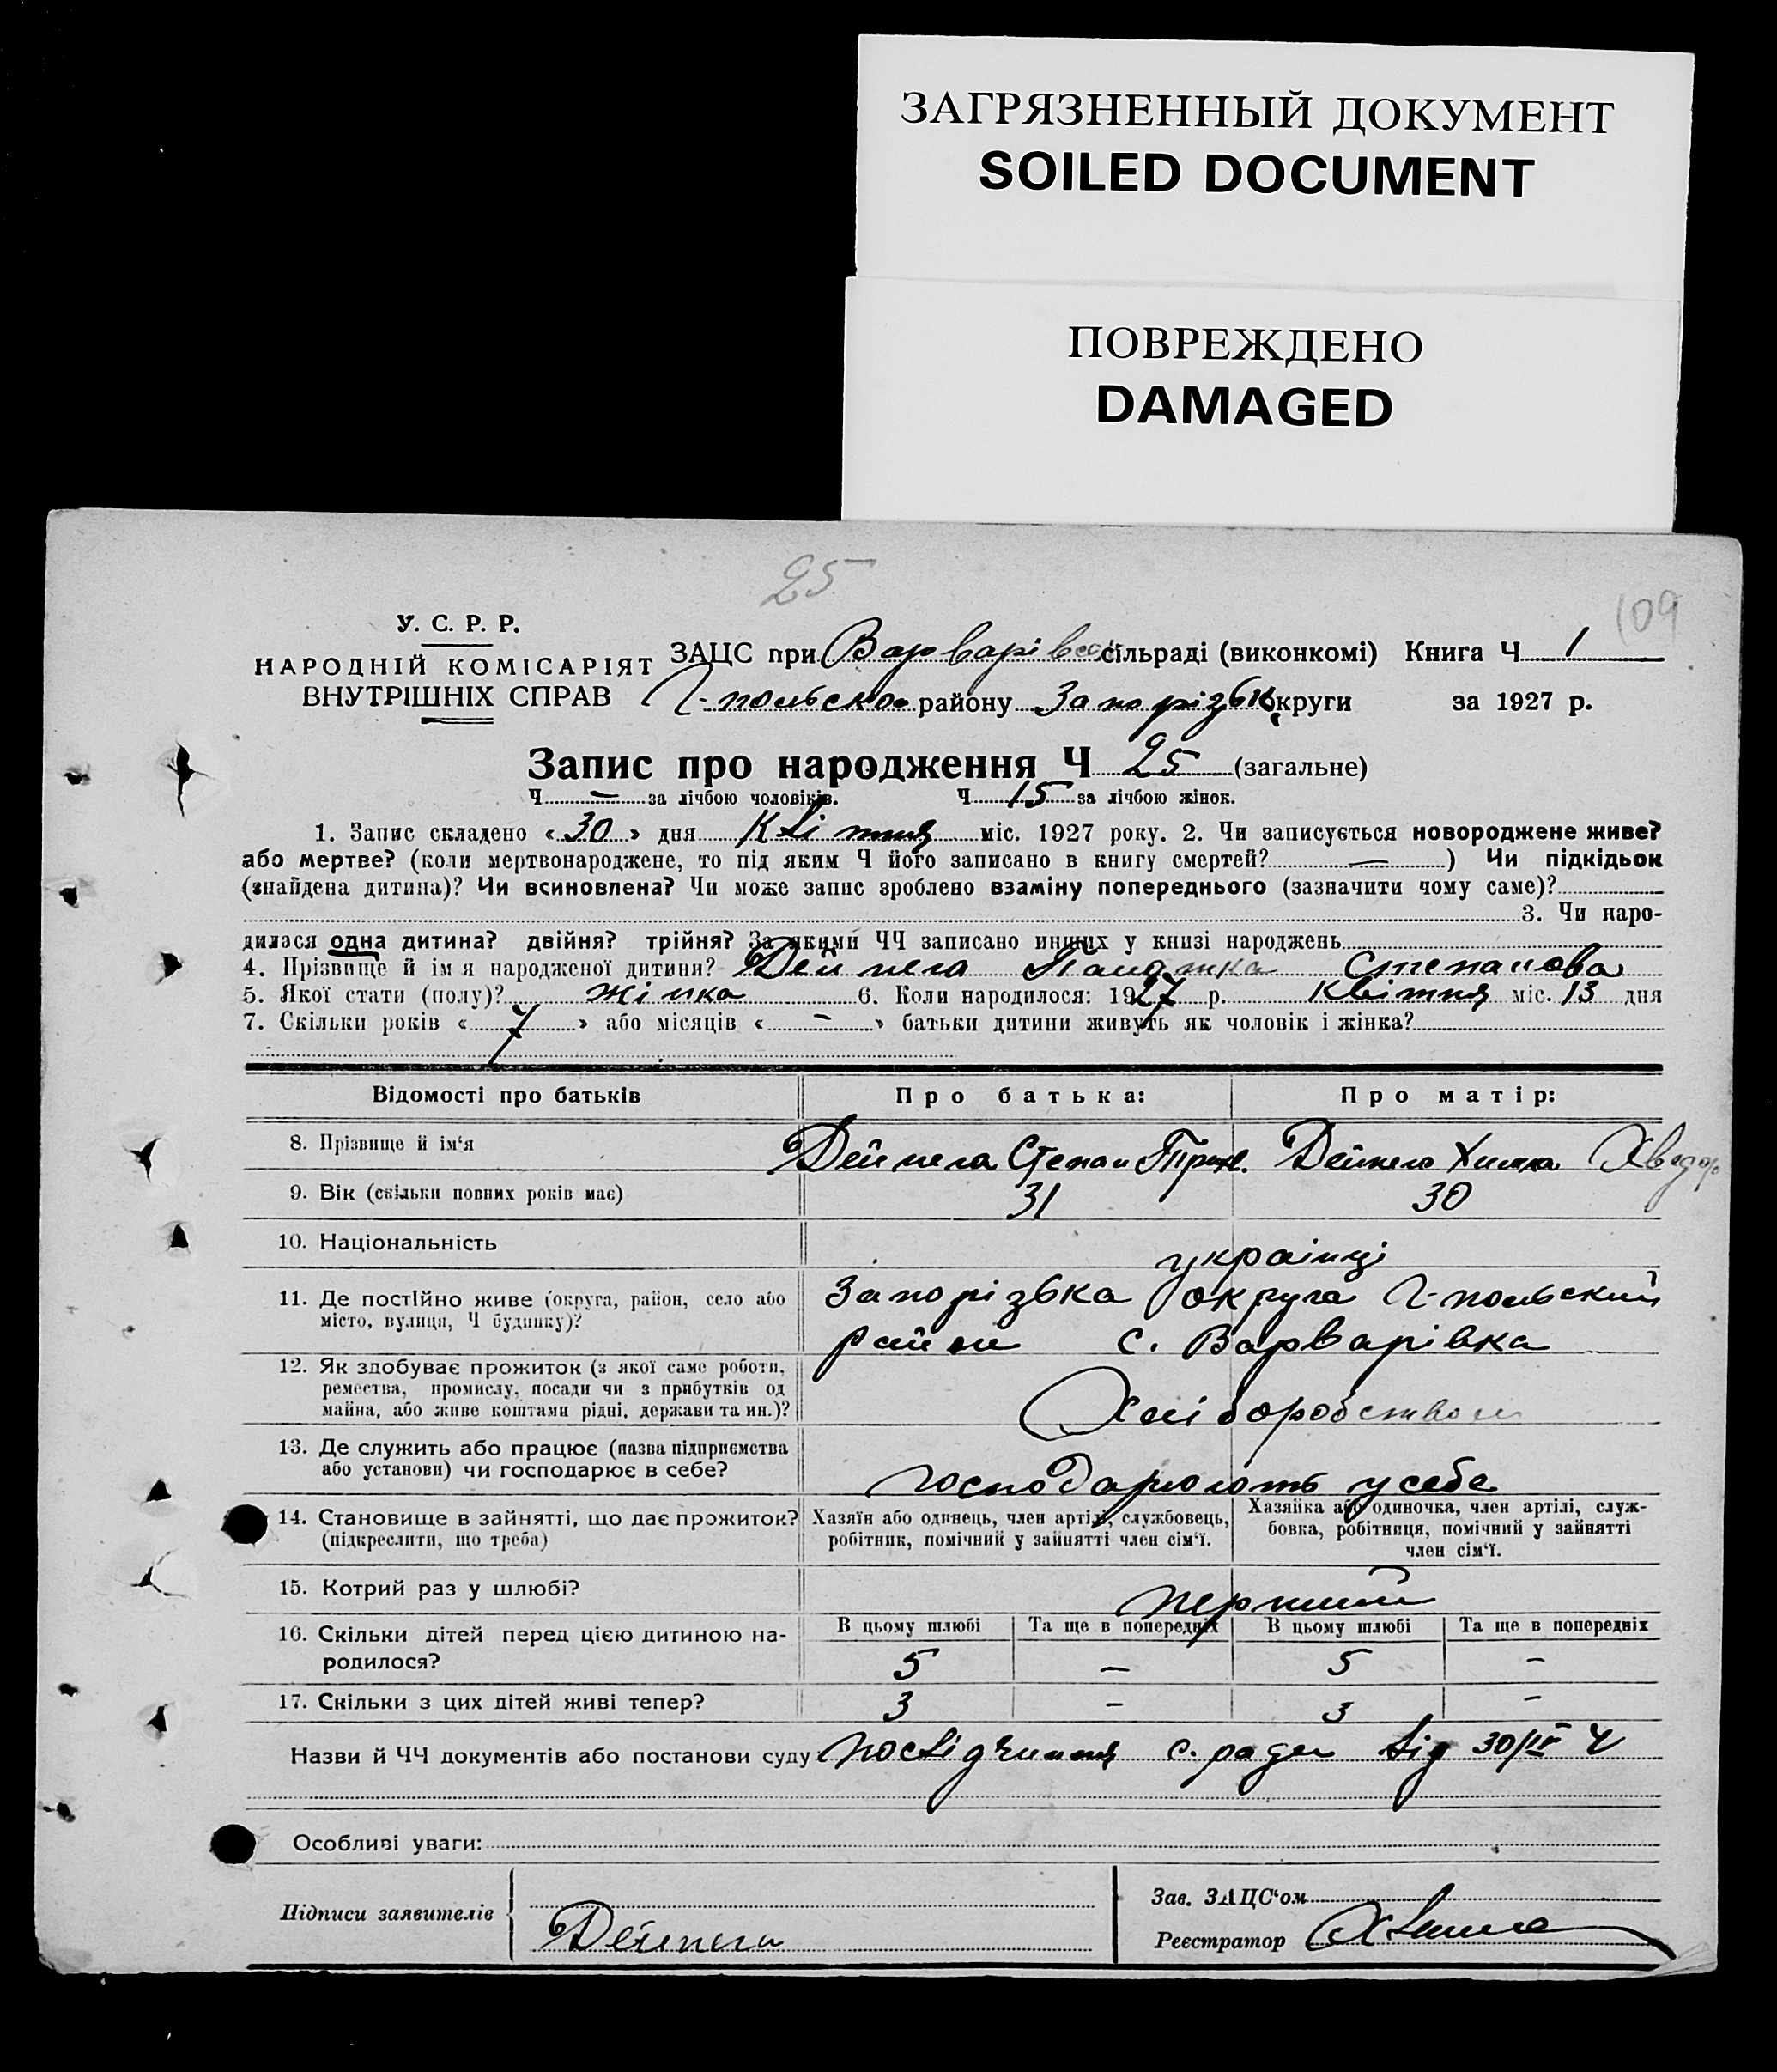 ЗАГРЯЗНЕННЫЙ ДОКУМЕНТ
SOILED DOCUMENT
ПОВРЕЖДЕНО
DAMAGED
25
109
У. С. Р. Р.
НАРОДНІЙ КОМІСАРІЯТ
ВНУТРІШНІХ СПРАВ
ЗАЦС при Варварівс сільраді (виконкомі) Книга Ч 1
Г-польсько району Запорізьк округи за 1927 р.
Запис про народження Ч 25 (загальне)
Ч — за лічбою чоловіків. Ч 15 за лічбою жінок.
1. Запис складено « 30 » дня Квітня міс. 1927 року. 2. Чи записується новороджене живе?
або мертве? (коли мертвонароджене, то під яким Ч його записано в книгу смертей? — ) Чи підкідьок
(знайдена дитина)? Чи всиновлена? Чи може запис зроблено взаміну попереднього (зазначити чому саме)?
3. Чи наро-
дилася одна дитина? двійня? трійня? За якими ЧЧ записано инших у книзі народжень
4. Прізвище й ім'я народженої дитини? Дейнега Степанова
5. Якої стати (полу)? жінка 6. Коли народилося: 1927 р. квітня міс. 13 дня
7. Скільки років « 7 » або місяців « - » батьки дитини живуть як чоловік і жінка?
Відомості про батьків Про батька: Про матір:
8. Прізвище й ім'я Дейнега Степан Дейнега Химка Хведор
9. Вік (скільки повних років має) 31 30
10. Національність українці
11. Де постійно живе (округа, район, село або Запорізька округа Г-польский
місто, вулиця, Ч будинку)? район с. Варварівка
12. Як здобуває прожиток (з якої саме роботи,
ремества, промислу, посади чи з прибутків од
майна, або живе коштами рідні, держави та ин.)? Хліборобством
13. Де служить або працює (назва підприємства
або установи) чи господарює в себе? господарюють у себе
14. Становище в зайнятті, що дає прожиток? Хазяїн або одинець, член артілі, службовець, Хазяйка або одиночка, член артілі, служ-
(підкреслити, що треба) робітник, помічний у зайнятті член сім'ї. бовка, робітниця, помічний у зайнятті
член сім'ї.
15. Котрий раз у шлюбі? перший
16. Скільки дітей перед цією дитиною на- В цьому шлюбі Та ще в попередніх В цьому шлюбі Та ще в попередніх
родилося? 5 — 5 —
17. Скільки з цих дітей живі тепер? 3 — 3 —
Назви й ЧЧ документів або постанови суду посвідчення с. ради від 30/IV Ч
Особливі уваги:
Підписи заявителів Зав. ЗАЦС'ом
Дейнега Реєстратор